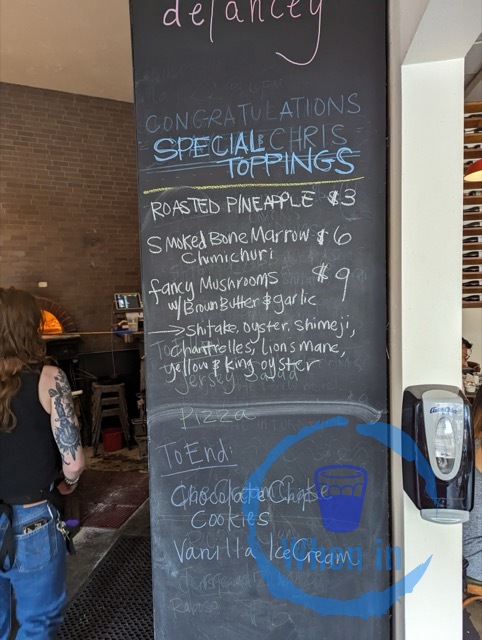 delancey
CONGRATULATIONS
& CHRIS
SPECIAL
TOPPINGS
ROASTED PINEAPPLE $3
Smoked Bone Marrow $6
Chimichuri
fancy Mushrooms $9
w/ Brown Butter & garlic
→ Shitake, oyster, Shimeji,
Chantrelles, Lions mane,
yellow & King oyster
Jersey Salad
Pizza
To End:
Chocolate Chip
Cookies
Vanilla Ice Cream
When in